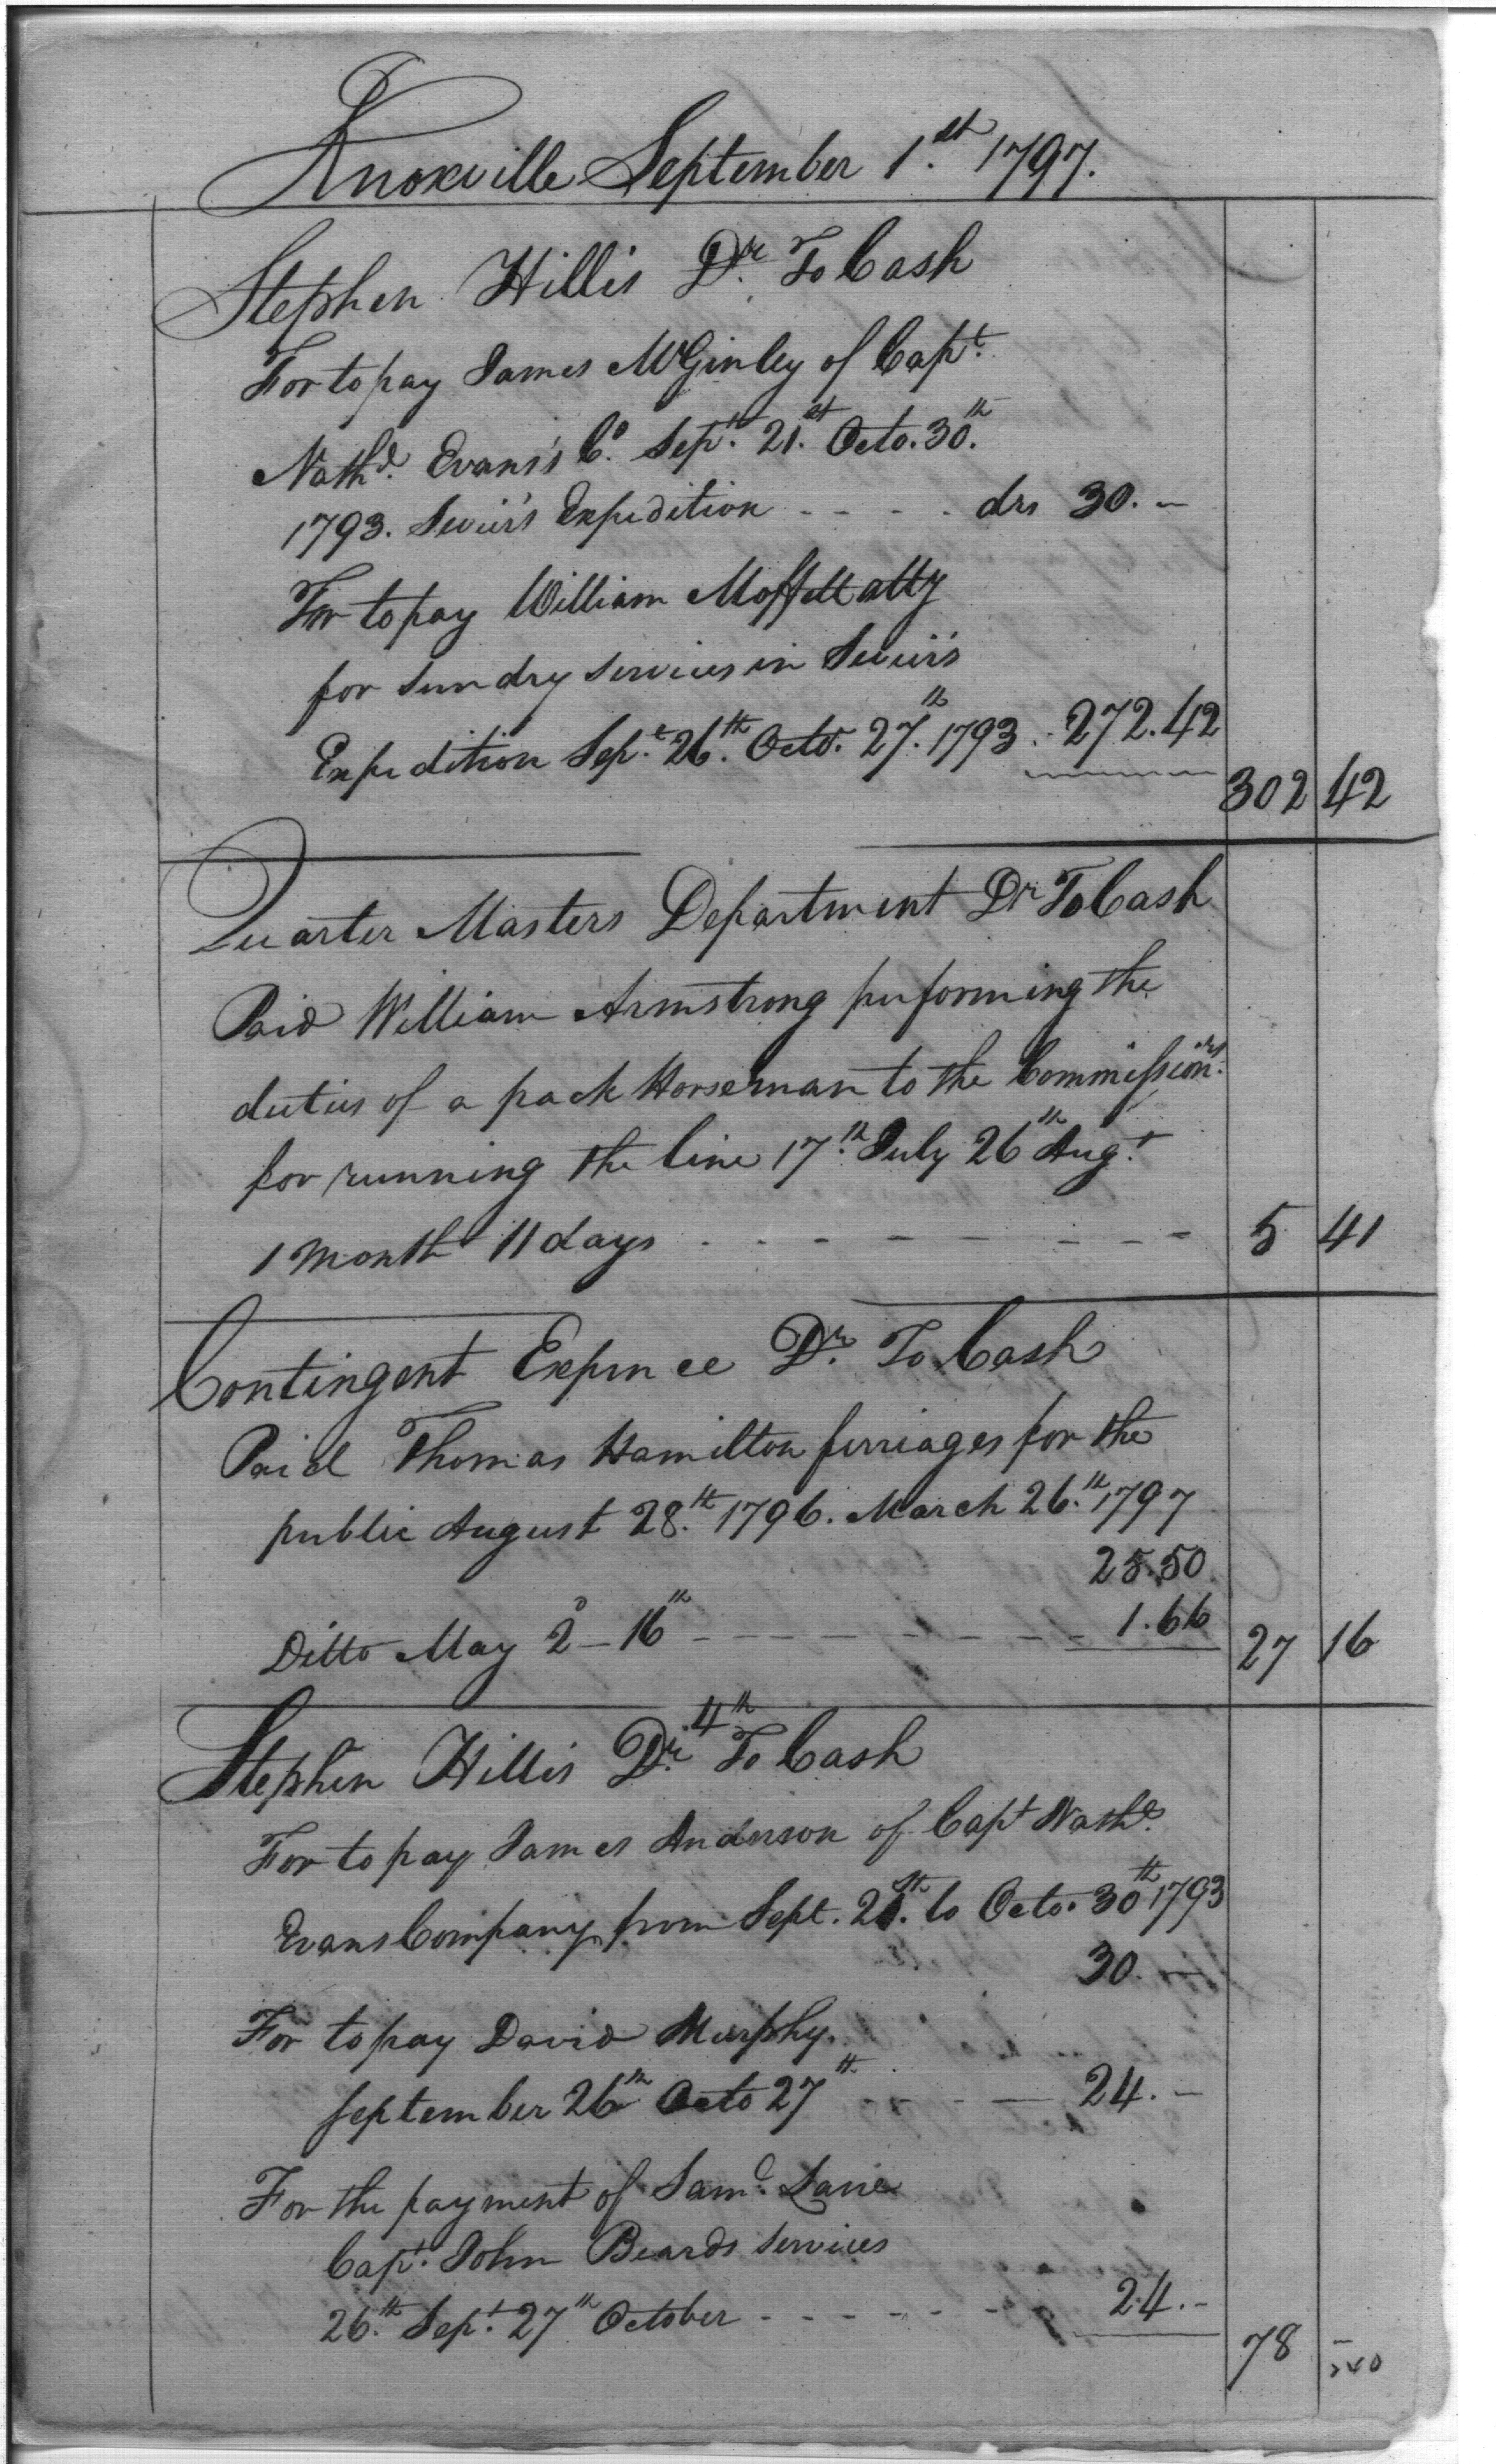 Knoxville September 1.st 1797.
Stephen Hillis Dr. To Cash
For to pay James McGinley of Capt.
Nathl. Evans's Co. Sept. 21.st Octo. 30.th
1793. Sevier's Expedition - - - - drs 30. -
For to pay William Moffett atty
for sundry services in Sevier's
Expedition Sept. 26.th Octo. 27.th 1793 . 272.42
302 42
Quarter Masters Department Dr To Cash
Paid William Armstrong performing the
duties of a pack Horseman to the Commission.rs
for running the line 17.th July 26th Aug.t
1 Month 11 days - - - - - - - - 5 41
Contingent Expence Dr. To Cash
Paid Thomas Hamilton ferriages for the
public August 28.th 1796. March 26.th 1797
25.50
Ditto May 2d - 16th - - - - - - - - 1.66 27 16
4th
Stephen Hillis Dr. To Cash
For to pay James Anderson of Capt Nathl.
Evans Company from Sept. 21.st to Octo. 30th 1793
30. -
For to pay David Murphy.
September 26th Octo 27th - - - - 24. -
For the payment of Saml. Lane
Capt. John Beards services
26.th Sept. 27th October - - - - - - 24. -
78 -